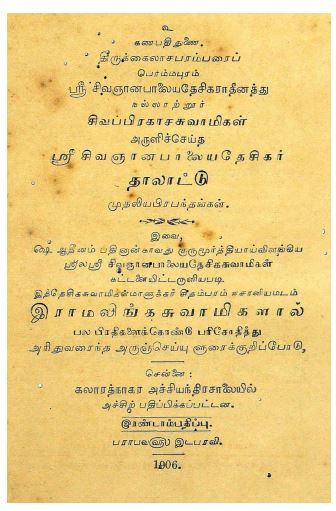 உ
கணபதி துணை.
திருக்கைலாசபரம்பரைப்
பெரம்மபுரம்
ஸ்ரீ சிவஞானபாலையதேசிகராதீனத்து
நல்லாற்றூர்
சிவப்பிரகாசசுவாமிகள்
அருளிச்செய்த
ஸ்ரீ சிவஞானபாலையதேசிகர்
தாலாட்டு
முதலியபிரபந்தங்கள்.
இவை,
ஷெ ஆதீனம் பதினான்காவது குருமூர்த்தியாய்விளங்கிய
ஸ்ரீலஸ்ரீ சிவஞானபாலையதேசிகசுவாமிகள்
கட்டளையிட்டருளியபடி
இத்தேசிகசுவாமிகள்மாணாக்கர் சிதம்பரம் ஈசானியமடம்
இராமலிங்கசுவாமிகளால்
பல பிரதிகளைக்கொண்டு பரிசோதித்து
அரிதுவரைந்த அருஞ்செய்யு ளுரைக்குறிப்போடு,
சென்னை:
கலாரத்நாகர அச்சியந்திரசாலையில்
அச்சிற் பதிப்பிக்கப்பட்டன.
இரண்டாம்பதிப்பு.
பராபவ௵ இடபரவி.
1906.